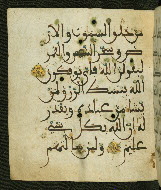 من خلق السموت والار
ض وسخر الشمس والقمر
ليقولن الله فانى يوفكون
الله يبسط الرزق لمن
يشا من عباده ويقدر
له ان الله بكل شى
عليم ولين سالتهم